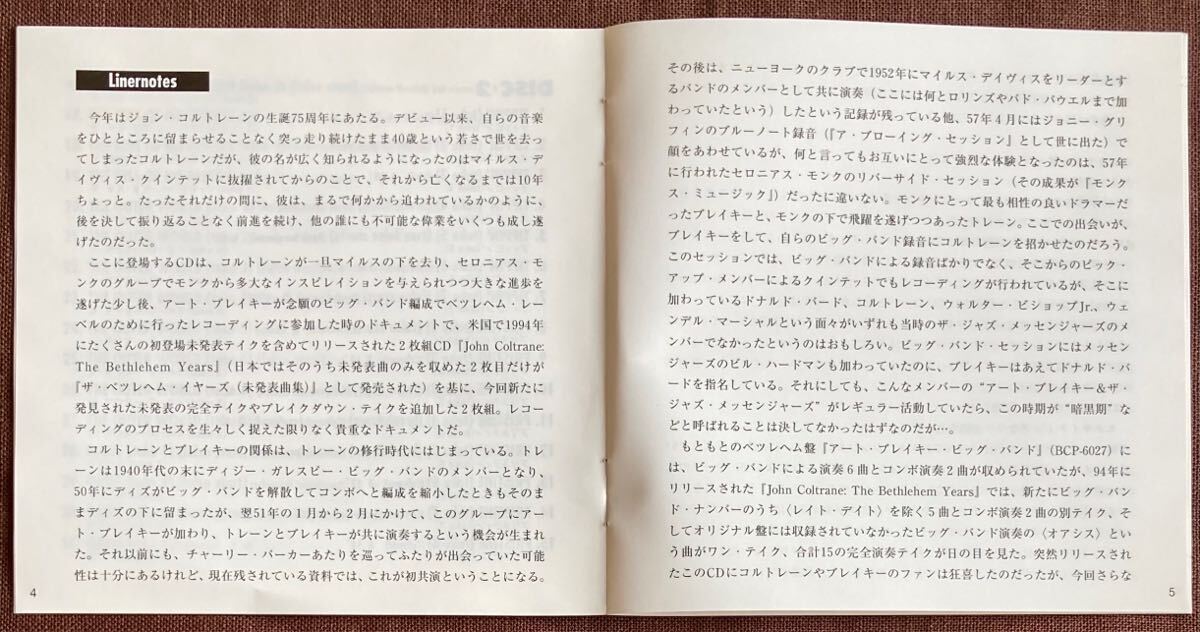 Linernotes
今年はジョン・コルトレーンの生誕75周年にあたる。デビュー以来、自らの音楽
をひとところに留まらせることなく突っ走り続けたまま40歳という若さで世を去っ
てしまったコルトレーンだが、彼の名が広く知られるようになったのはマイルス・デ
イヴィス・クインテットに抜擢されてからのことで、それから亡くなるまでは10年
ちょっと。たったそれだけの間に、彼は、まるで何かから追われているかのように、
後を決して振り返ることなく前進を続け、他の誰にも不可能な偉業をいくつも成し遂
げたのだった。
ここに登場するCDは、コルトレーンが一旦マイルスの下を去り、セロニアス・モ
ンクのグループでモンクから多大なインスピレイションを与えられつつ大きな進歩を
遂げた少し後、アート・ブレイキーが念願のビッグ・バンド編成でベツレヘム・レー
ベルのために行ったレコーディングに参加した時のドキュメントで、米国で1994年
にたくさんの初登場未発表テイクを含めてリリースされた2枚組CD『John Coltrane:
The Bethlehem Years』（日本ではそのうち未発表曲のみを収めた2枚目だけが
『ザ・ベツレヘム・イヤーズ（未発表曲集）』として発売された）を基に、今回新たに
発見された未発表の完全テイクやブレイクダウン・テイクを追加した2枚組。レコー
ディングのプロセスを生々しく捉えた限りなく貴重なドキュメントだ。
コルトレーンとブレイキーの関係は、トレーンの修行時代にはじまっている。トレ
ーンは1940年代の末にディジー・ガレスピー・ビッグ・バンドのメンバーとなり、
50年にディズがビッグ・バンドを解散してコンボへと編成を縮小したときもそのま
まディズの下に留まったが、翌51年の1月から2月にかけて、このグループにアー
ト・ブレイキーが加わり、トレーンとブレイキーが共に演奏するという機会が生まれ
た。それ以前にも、チャーリー・パーカーあたりを巡ってふたりが出会っていた可能
性は十分にあるけれど、現在残されている資料では、これが初共演ということになる。
4
その後は、ニューヨークのクラブで1952年にマイルス・デイヴィスをリーダーとす
るバンドのメンバーとして共に演奏（ここには何とロリンズやバド・パウエルまで加
わっていたという）したという記録が残っている他、57年4月にはジョニー・グリ
フィンのブルーノート録音（『ア・ブローイング・セッション』として世に出た）で
顔をあわせているが、何と言ってもお互いにとって強烈な体験となったのは、57年
に行われたセロニアス・モンクのリバーサイド・セッション（その成果が『モンク
ス・ミュージック』）だったに違いない。モンクにとって最も相性の良いドラマーだ
ったブレイキーと、モンクの下で飛躍を遂げつつあったトレーン。ここでの出会いが、
ブレイキーをして、自らのビッグ・バンド録音にコルトレーンを招かせたのだろう。
このセッションでは、ビッグ・バンドによる録音ばかりでなく、そこからのピック・
アップ・メンバーによるクインテットでもレコーディングが行われているが、そこに
加わっているドナルド・バード、コルトレーン、ウォルター・ビショップJr.、ウェ
ンデル・マーシャルという面々がいずれも当時のザ・ジャズ・メッセンジャーズのメ
ンバーでなかったというのはおもしろい。ビッグ・バンド・セッションにはメッセン
ジャーズのビル・ハードマンも加わっていたのに、ブレイキーはあえてドナルド・バ
ードを指名している。それにしても、こんなメンバーの“アート・ブレイキー＆ザ・
ジャズ・メッセンジャーズ”がレギュラー活動していたら、この時期が“暗黒期”な
どと呼ばれることは決してなかったはずなのだが…。
もともとのベツレヘム盤『アート・ブレイキー・ビッグ・バンド』（BCP-6027）に
は、ビッグ・バンドによる演奏6曲とコンボ演奏2曲が収められていたが、94年に
リリースされた『John Coltrane: The Bethlehem Years』では、新たにビッグ・バン
ド・ナンバーのうち〈レイト・デイト〉を除く5曲とコンボ演奏2曲の別テイク、そ
してオリジナル盤には収録されていなかったビッグ・バンド演奏の〈オアシス〉とい
う曲がワン・テイク、合計15の完全演奏テイクが日の目を見た。突然リリースされ
たこのCDにコルトレーンやブレイキーのファンは狂喜したのだったが、今回さらな
5